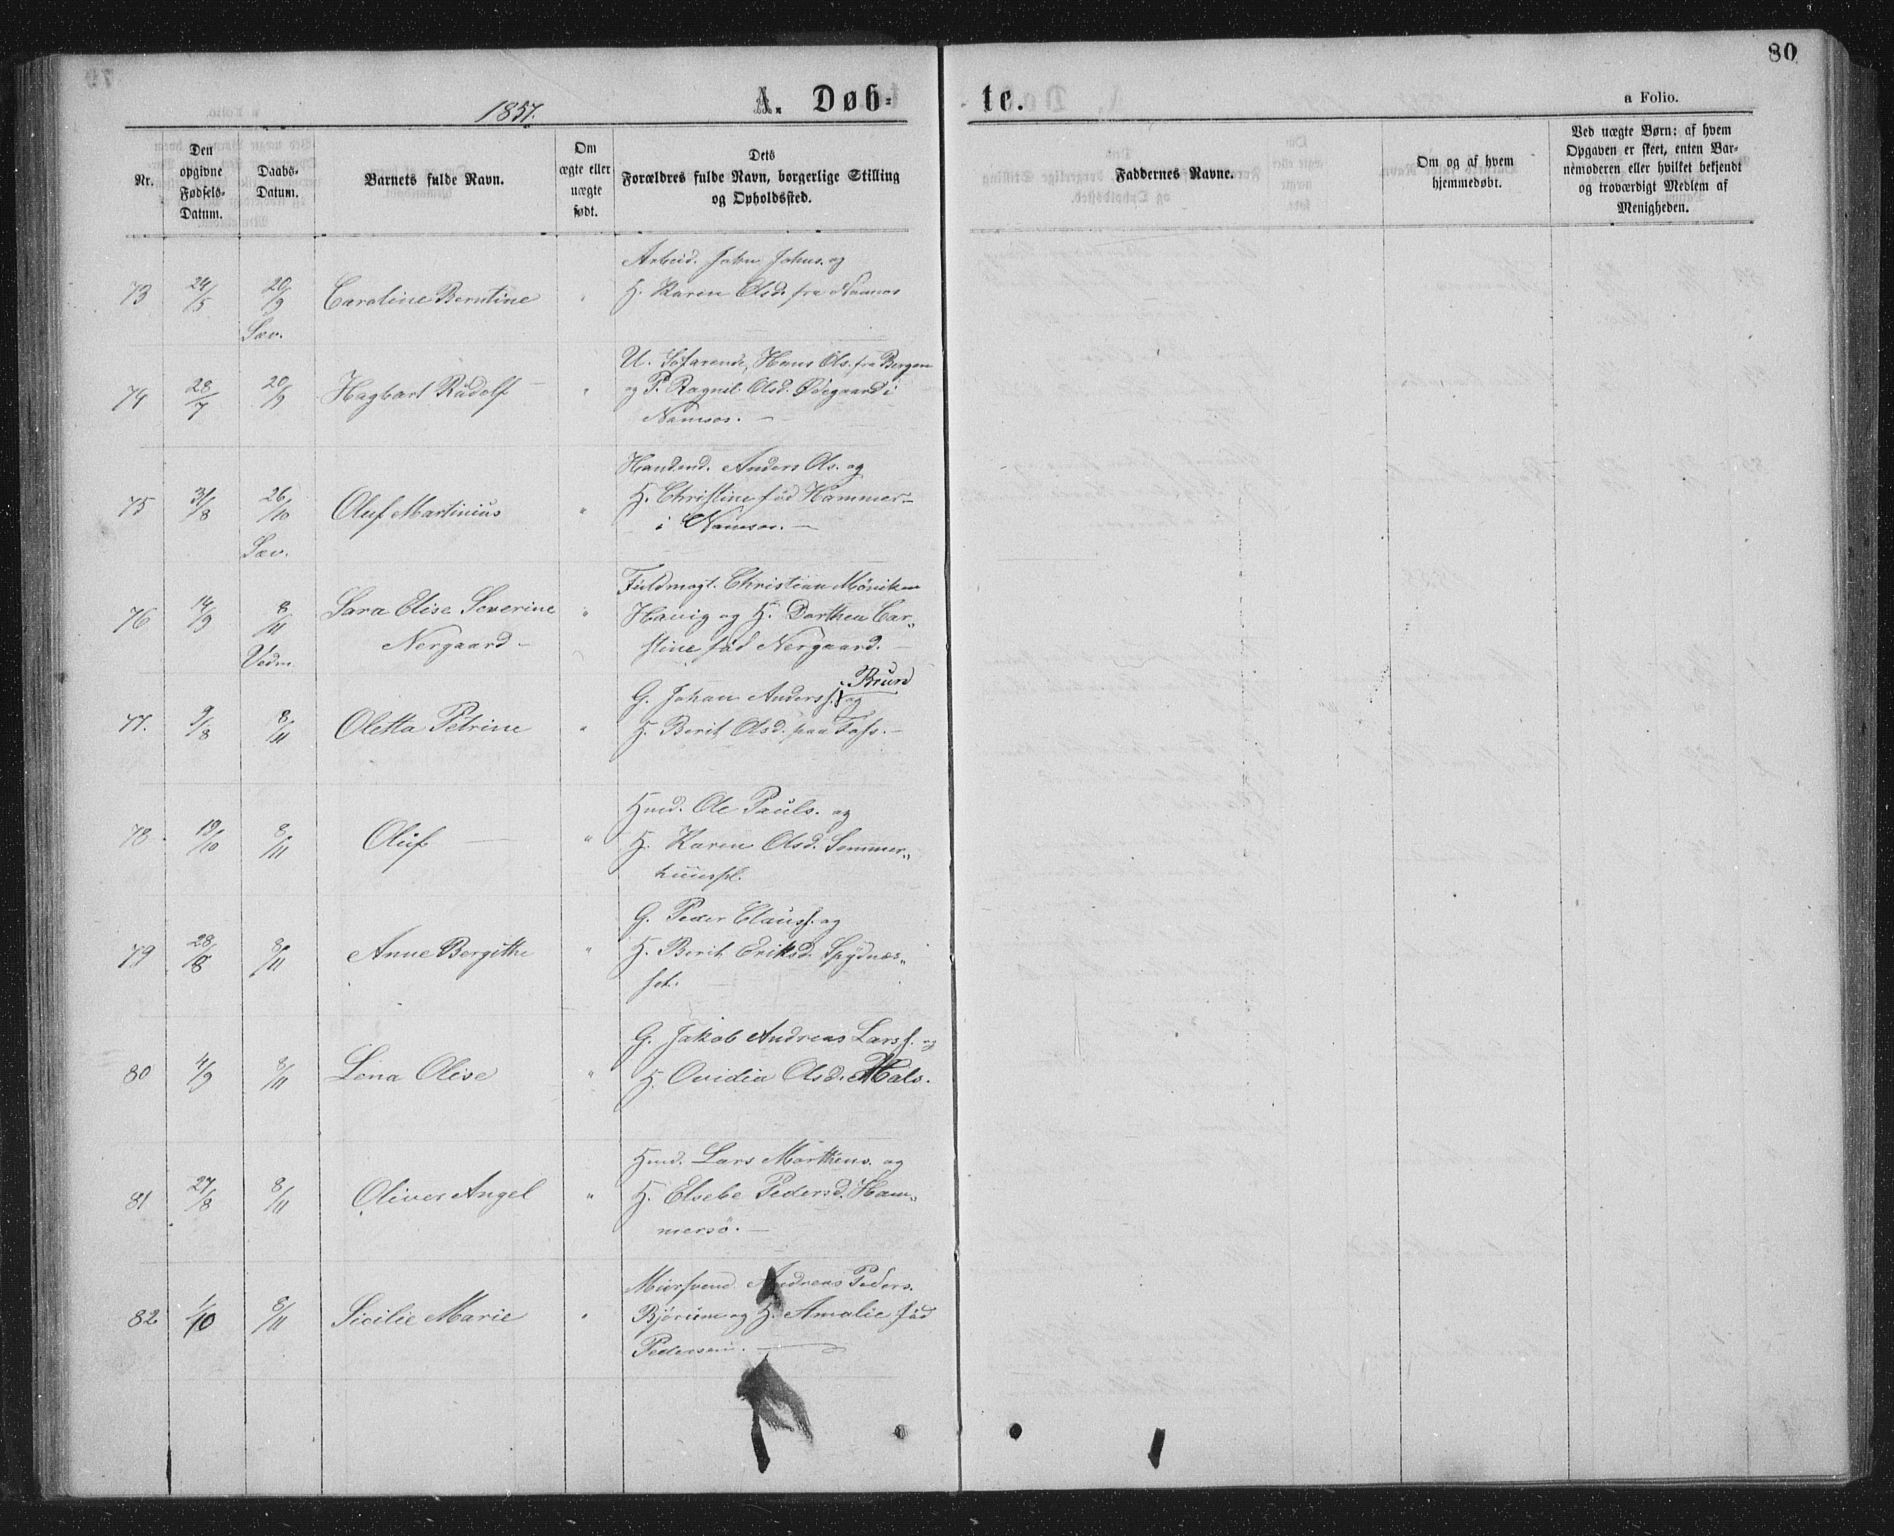 80
1857.
A. Døb-
te.
a Folio.
Nr.
Den opgivne Fødsels-Datum.
Daabs-Datum.
Barnets fulde Navn.
Om ægte eller uægte født.
Dets Forældres fulde Navn, borgerlige Stilling og Opholdssted.
Faddernes Navne.
Om og af hvem hjemmedøbt.
Ved uægte Børn: af hvem Opgaven er skeet, enten Barnemoderen eller hvilket bekjendt og troværdigt Medlem af Menigheden.
Arbeid. John Johns. og
73 24/5 20/9 Caroline Berntine " H. Karen Olsd. fra Namsos
Sæv.
U. Søfarende, Hans Ols. fra Bergen
74 28/7 20/9 Hagbart Rudolf " og P. Ragnil Olsd. Ødegaard i
Namsos.
Handend. Anders Ols. og
75 31/8 26/10 Oluf Martinius " H. Christine fød Hammer
i Namsos.
Sæv.
Fuldmægt. Christian Møniken
76 14/9 8/11 Sara Elise Severine " Havig og H. Dorthea Car„
Vedm. Nergaard stine fød Nergaard.
G. Johan Anderss. Brurd og
77. 9/8 8/11 Oletta Petrine " H. Berit Olsd. paa
Hmd. Ole Pauls. og
78 19/10 8/11 Oluf " H. Karen Olsd. Sommer„
huuspl.
G. Peder Clauss. og
79 28/8 8/11 Anne Bergithe " H. Berit Eriksd. Spydnæs„
set.
G. Jakob Andreas Larss. og
80 4/9 8/11 Lena Olise " H. Ovidia Olsd. Hals.
Hmd. Lars Morthens. og
81 27/8 8/11 Oliver Angel " H. Elsebe Pedersd. Ham„
mersø.
Muursvend. Andreas Peders.
82 1/10 8/11 Sicilie Marie " Bjørum og H. Amalie fød
Pedersen.